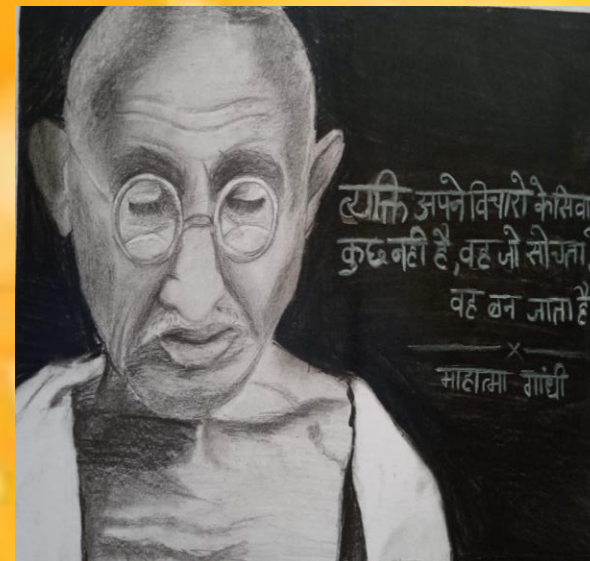 व्यक्ति अपने विचारो के सिवा
कुछ नही है, वह जो सोचता,
वह बन जाता है
माहात्मा गांधी